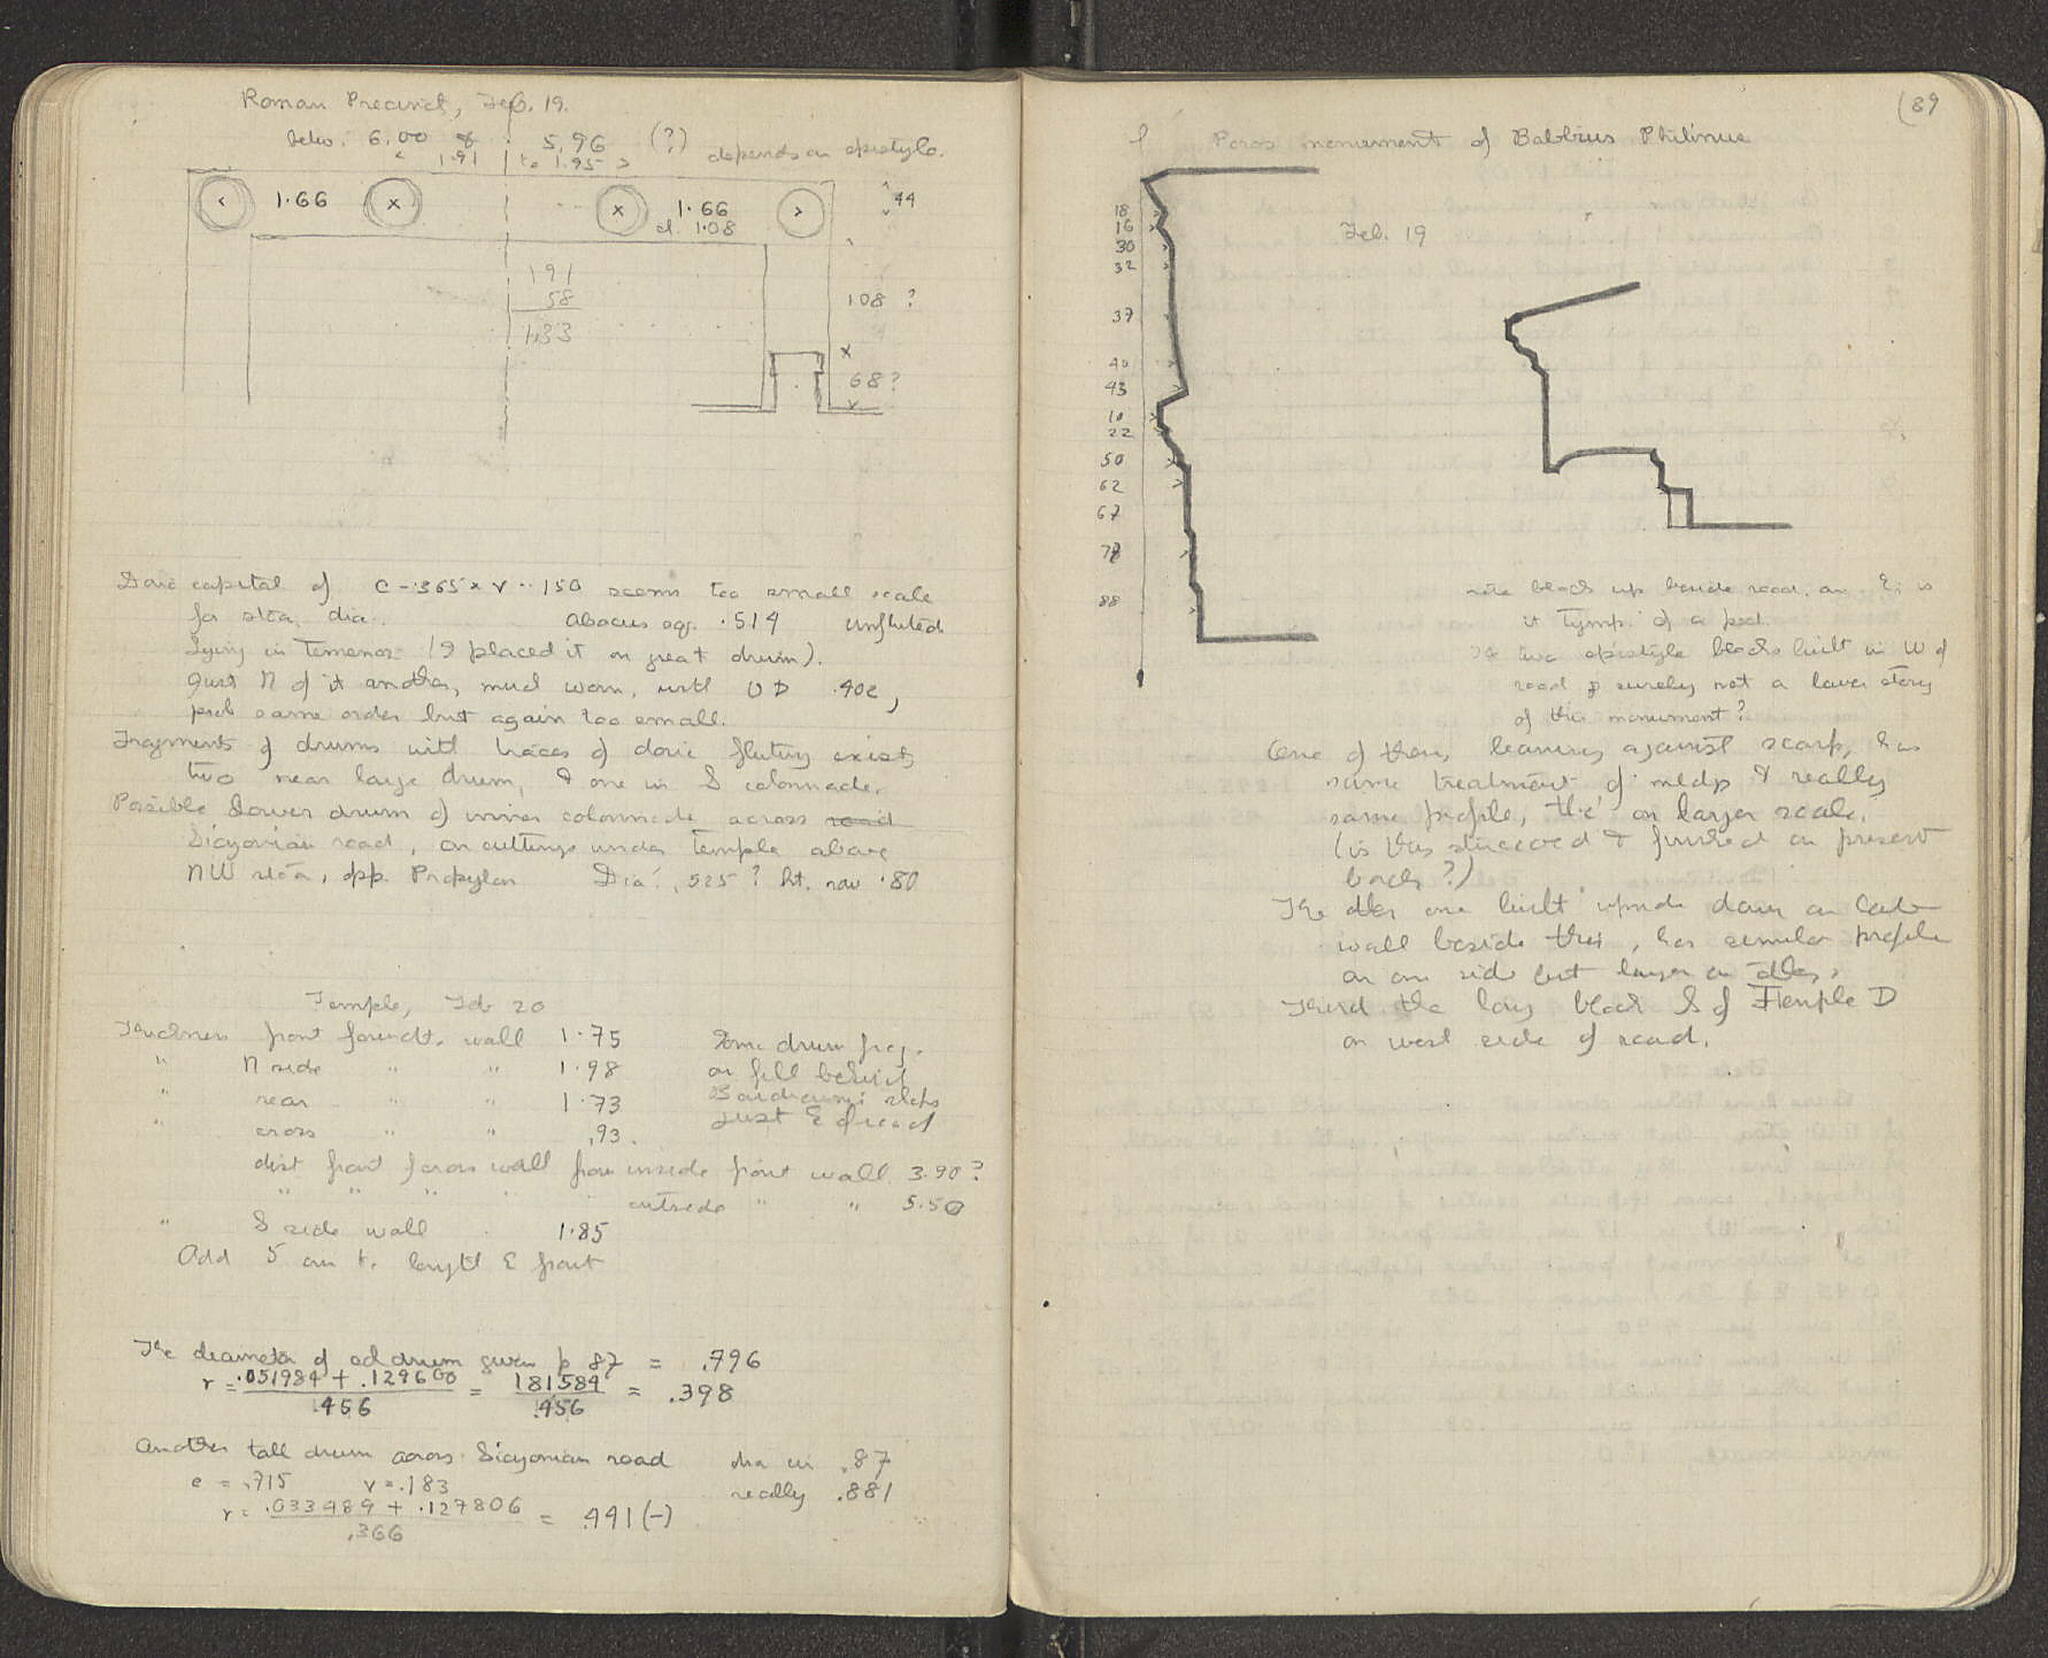 Roman Precinct, Feb. 19.
betw. 6.00 & 5.96 (?) depends on epistyle.
1.91 to 1.95
1.66 1.66 44
cl. 1.08
191
58
1.33
108 ?
68?
Doric capital of c - .365 x v .. 150 seems too small scale
for stoa, dia. abacus sq. .514 unfluted
Lying in Temenos (I placed it on great drum).
Just N of it another, much worn, with UD .402,
prob same order but again too small.
Fragments of drums with traces of doric fluting exist,
two near large drum, & one in S colonnade.
Possible lower drum of inner colonnade across road
Sicyonian road, on cuttings under temple above
NW stoa, opp. Propylon Dia. .525 ? ht. now .80
Temple, Feb 20
Thickness front foundt. wall 1.75
" N side " " 1.98
" rear " " 1.73
" cross " " .93.
Some drum frag.
on fill behind
steps
just E of road
dist front of cross wall from inside front wall 3.90?
" " " " outside " " 5.50
" S side wall 1.85
Add 5 cm to length E front
The diameter of drum given p 87 = .796
r = .051984 + .129600 / .456 = 181584 / .456 = .398
Another tall drum across Sicyonian road dia is .87
c = .715 v = .183 really .881
r = .033489 + .127806 / .366 = .441 (-)
(89
Poros monument of Babbius Philinus
Feb. 19
18
16
30
32
37
40
43
10
22
50
62
67
78
88
note block up beside road, on E; is
it tymp. of a ped.
two epistyle blocks built in W of
road surely not a lower story
of this monument?
One of them, leaning against scarp, has
same treatment of mldg & really
same profile, tho' on larger scale.
(is this stuccoed & finished on present
back?)
The other one built upside down on late
wall beside this, has similar profile
on one side but larger on other.
Third the long block S of Temple D
on west side of road.